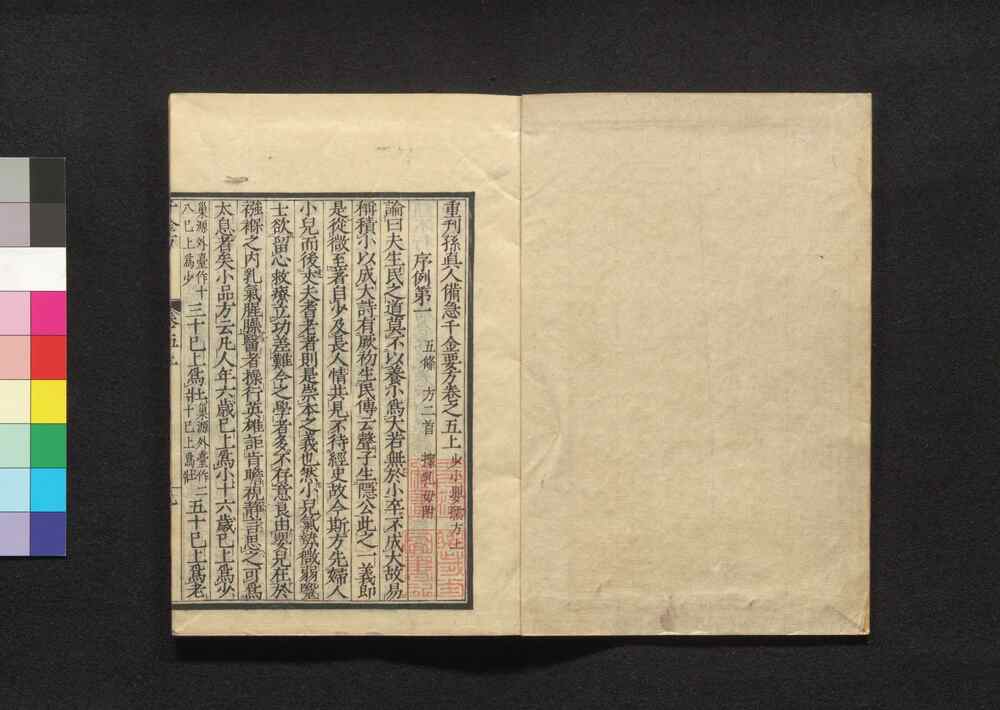 重刊孫真人備急千金要方卷之五上 少小嬰孺方上
序例第一 五條 方二首 擇乳母附
論曰夫生民之道莫不以養小爲大若無於小卒不成大故易
稱積小以成大詩有厥初生民傳云聲子生隱公此之一義即
是從微至著自少及長人情共見不待經史故今斯方先婦人
小兒而後丈夫耆老者則是崇本之義也然小兒氣勢微弱醫
士欲留心救療立功差難今之學者多不存意良由嬰兒在於
襁褓之内乳氣腥臊醫者操行英雄詎肯瞻視靜言思之可爲
太息者矣小品方云凡人年六歲已上爲小十六歲已上爲少
巢源外臺作十八已上爲少 三十已上爲壯 巢源外臺作二十已上爲壯 五十已上爲老